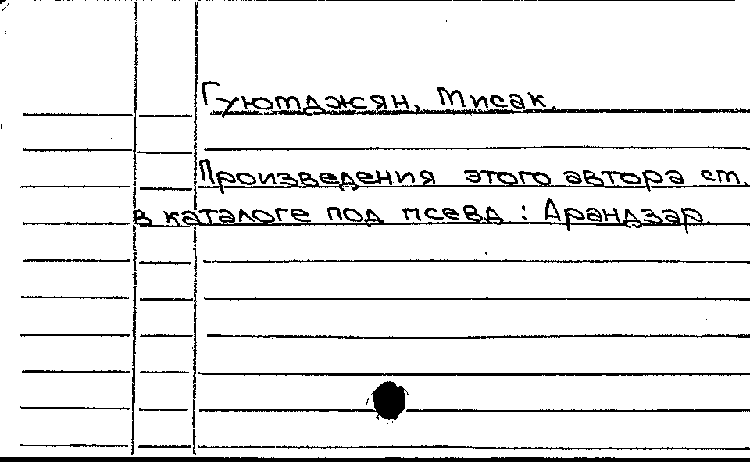 Гуютджян, Мисак.
Произведения этого автора см.
в каталоге под псевд : Арандзар.